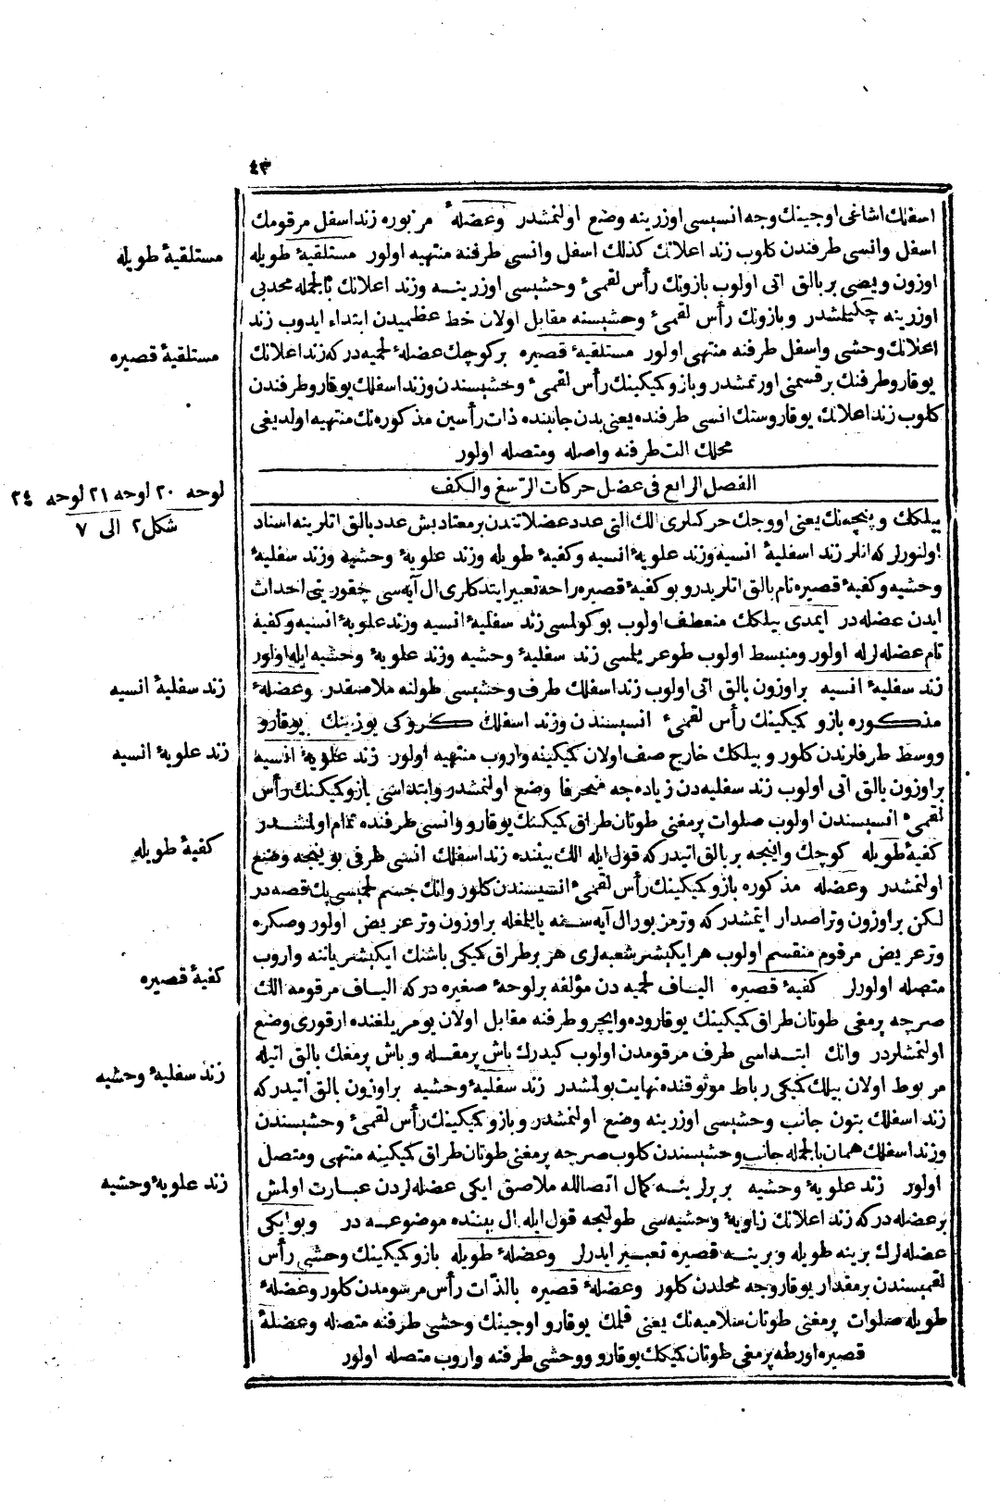 ٤٣
اسفلك اشاغى اوجينك وجه انسيسى اوزرينه وضع اولنمشدر وعضلهٔ مزبوره زند اسفل مرقومك
اسفل وانسى طرفندن كلوب زند اعلانك كذلك اسفل وانسى طرفنه منتهيه اولور مستلقيهٔ طويله
مستلقيهٔ طويله
اوزون ويصى بر بالق اتى اولوب بازونك رأس لقمىٔ وحشيسى اوزرينه وزند اعلانك بالجمله محدبى
اوزرينه چكيلشدر وبازونك رأس لقمىٔ وحشيسنه مقابل اولان خط عظميدن ابتداء ايدوب زند
اعلانك وحشى واسفل طرفنه منتهى اولور مستلقيهٔ قصيره بر كوچك عضلهٔ لحميه دركه زند اعلانك
مستلقيهٔ قصيره
يوقارو طرفنك بر قسمنى اورتمشدر وبازو كيكينك رأس لقمىٔ وحشيسندن وزند اسفلك يوقارو طرفندن
كلوب زند اعلانك يوقاروسنك انسى طرفنده يعنى بدن جانبنده ذات رأسين مذكوره نك منتهيه اولديغى
محلك الت طرفنه واصله ومتصله اولور
الفصل الرابع فى عضل حركات الرسغ والكف
لوحه ٢٠ لوحه ٢١ لوحه ٢٤
شكل ٢ الى ٧
بيلكك وپنچه نك يعنى اووجك حركتلرى الك التى عدد عضلاتندن بر معتاد بش عدد بالق اتلرينه اسناد
اولنورلر كه انلر زند اسفليهٔ انسيه وزند علويهٔ انسيه وكفيهٔ طويله وزند علويهٔ وحشيه وزند سفليهٔ
وحشيه وكفيهٔ قصيره نام بالق اتلريدر وبو كفيهٔ قصيره راحه تعبير ايتدكلرى ال آيه سى چقوريتى احداث
ايدن عضله در ايمدى بيلكك منعطف اولوب بوكولمسى زند سفليهٔ انسيه وزند علويهٔ انسيه وكفيهٔ
نام عضله لرله اولور ومنبسط اولوب طوغريلمسى زند سفليهٔ وحشيه وزند علويهٔ وحشيه ايله اولور
زند سفليهٔ انسيه بر اوزون بالق اتى اولوب زند اسفلك طرف وحشيسى طولنه ملاصقدر وعضلهٔ
زند سفليهٔ انسيه
مذكوره بازو كيكينك رأس لقمىٔ انسيسندن وزند اسفلك كروكى يوزينك يوقارو
ووسط طرفلرندن كلور وبيلكك خارج صف اولان كيكينه واروب منتهيه اولور زند علويهٔ انسيه
زند علويهٔ انسيه
بر اوزون بالق اتى اولوب زند سفليه دن زياده جه منحرفا وضع اولنمشدر وابتداسى بازو كيكينك رأس
لقمىٔ انسيسندن اولوب صلوات پرمغنى طوتان طراق كيكينك يوقارو وانسى طرفنده تمام اولمشدر
كفيهٔ طويله كوچك واينجه بر بالق اتيدر كه قول ايله الك بيننده زند اسفلك انسى طرفى بوينجه وضع
كفيهٔ طويله
اولنمشدر وعضله مذكوره بازو كيكينك رأس لقمىٔ انسيسندن كلور وانك جسم لحميسى پك قصه در
لكن بر اوزون وتر اصدار ايتمشدر كه وتر مزبور ال آيه سنه يايلمغله بر اوزون وتر عريض اولور وصكره
وتر عريض مرقوم منقسم اولوب هر ايكيشر شعبه لرى هر بر طراق كيكى باشنك ايكيشر ياننه واروب
متصله اولورلر كفيهٔ قصيره الياف لحميه دن مؤلفه بر لوحهٔ صغيره دركه الياف مرقومه الك
كفيهٔ قصيره
صرچه پرمغى طوتان طراق كيكينك يوقاروده وايچرو طرفنه مقابل اولان يومريلغنده ارقورى وضع
اولنمشلردر وانك ابتداسى طرف مرقومدن اولوب كيدرك باش پرمقله وباش پرمغك بالق اتيله
مربوط اولان بيلك كيكى رباط موثوقنده نهايت بولمشدر زند سفليهٔ وحشيه بر اوزون بالق اتيدر كه
زند سفليهٔ وحشيه
زند اسفلك بتون جانب وحشيسى اوزرينه وضع اولنمشدر وبازو كيكينك رأس لقمىٔ وحشيسندن
وزند اسفلك همان بالجمله جانب وحشيسندن كلوب صرچه پرمغى طوتان طراق كيكينه منتهى ومتصل
اولور زند علويهٔ وحشيه بر برلرينه كمال اتصالله ملاصق ايكى عضله لردن عبارت اولمش
زند علويهٔ وحشيه
بر عضله دركه زند اعلانك زاويهٔ وحشيه سى طولنجه قول ايله ال بيننده موضوعه در وبو ايكى
عضله لرك برينه طويله وبرينه قصيره تعبير ايدرلر وعضلهٔ طويله بازو كيكينك وحشى رأس
لقميسندن بر مقدار يوقاروجه محلدن كلور وعضلهٔ قصيره بالذات رأس مرسومدن كلور وعضلهٔ
طويله صلوات پرمغى طوتان سلاميه نك يعنى قلمك يوقارو اوجينك وحشى طرفنه متصله وعضلهٔ
قصيره اورطه پرمغى طوتان كيكك يوقارو ووحشى طرفنه واروب متصله اولور